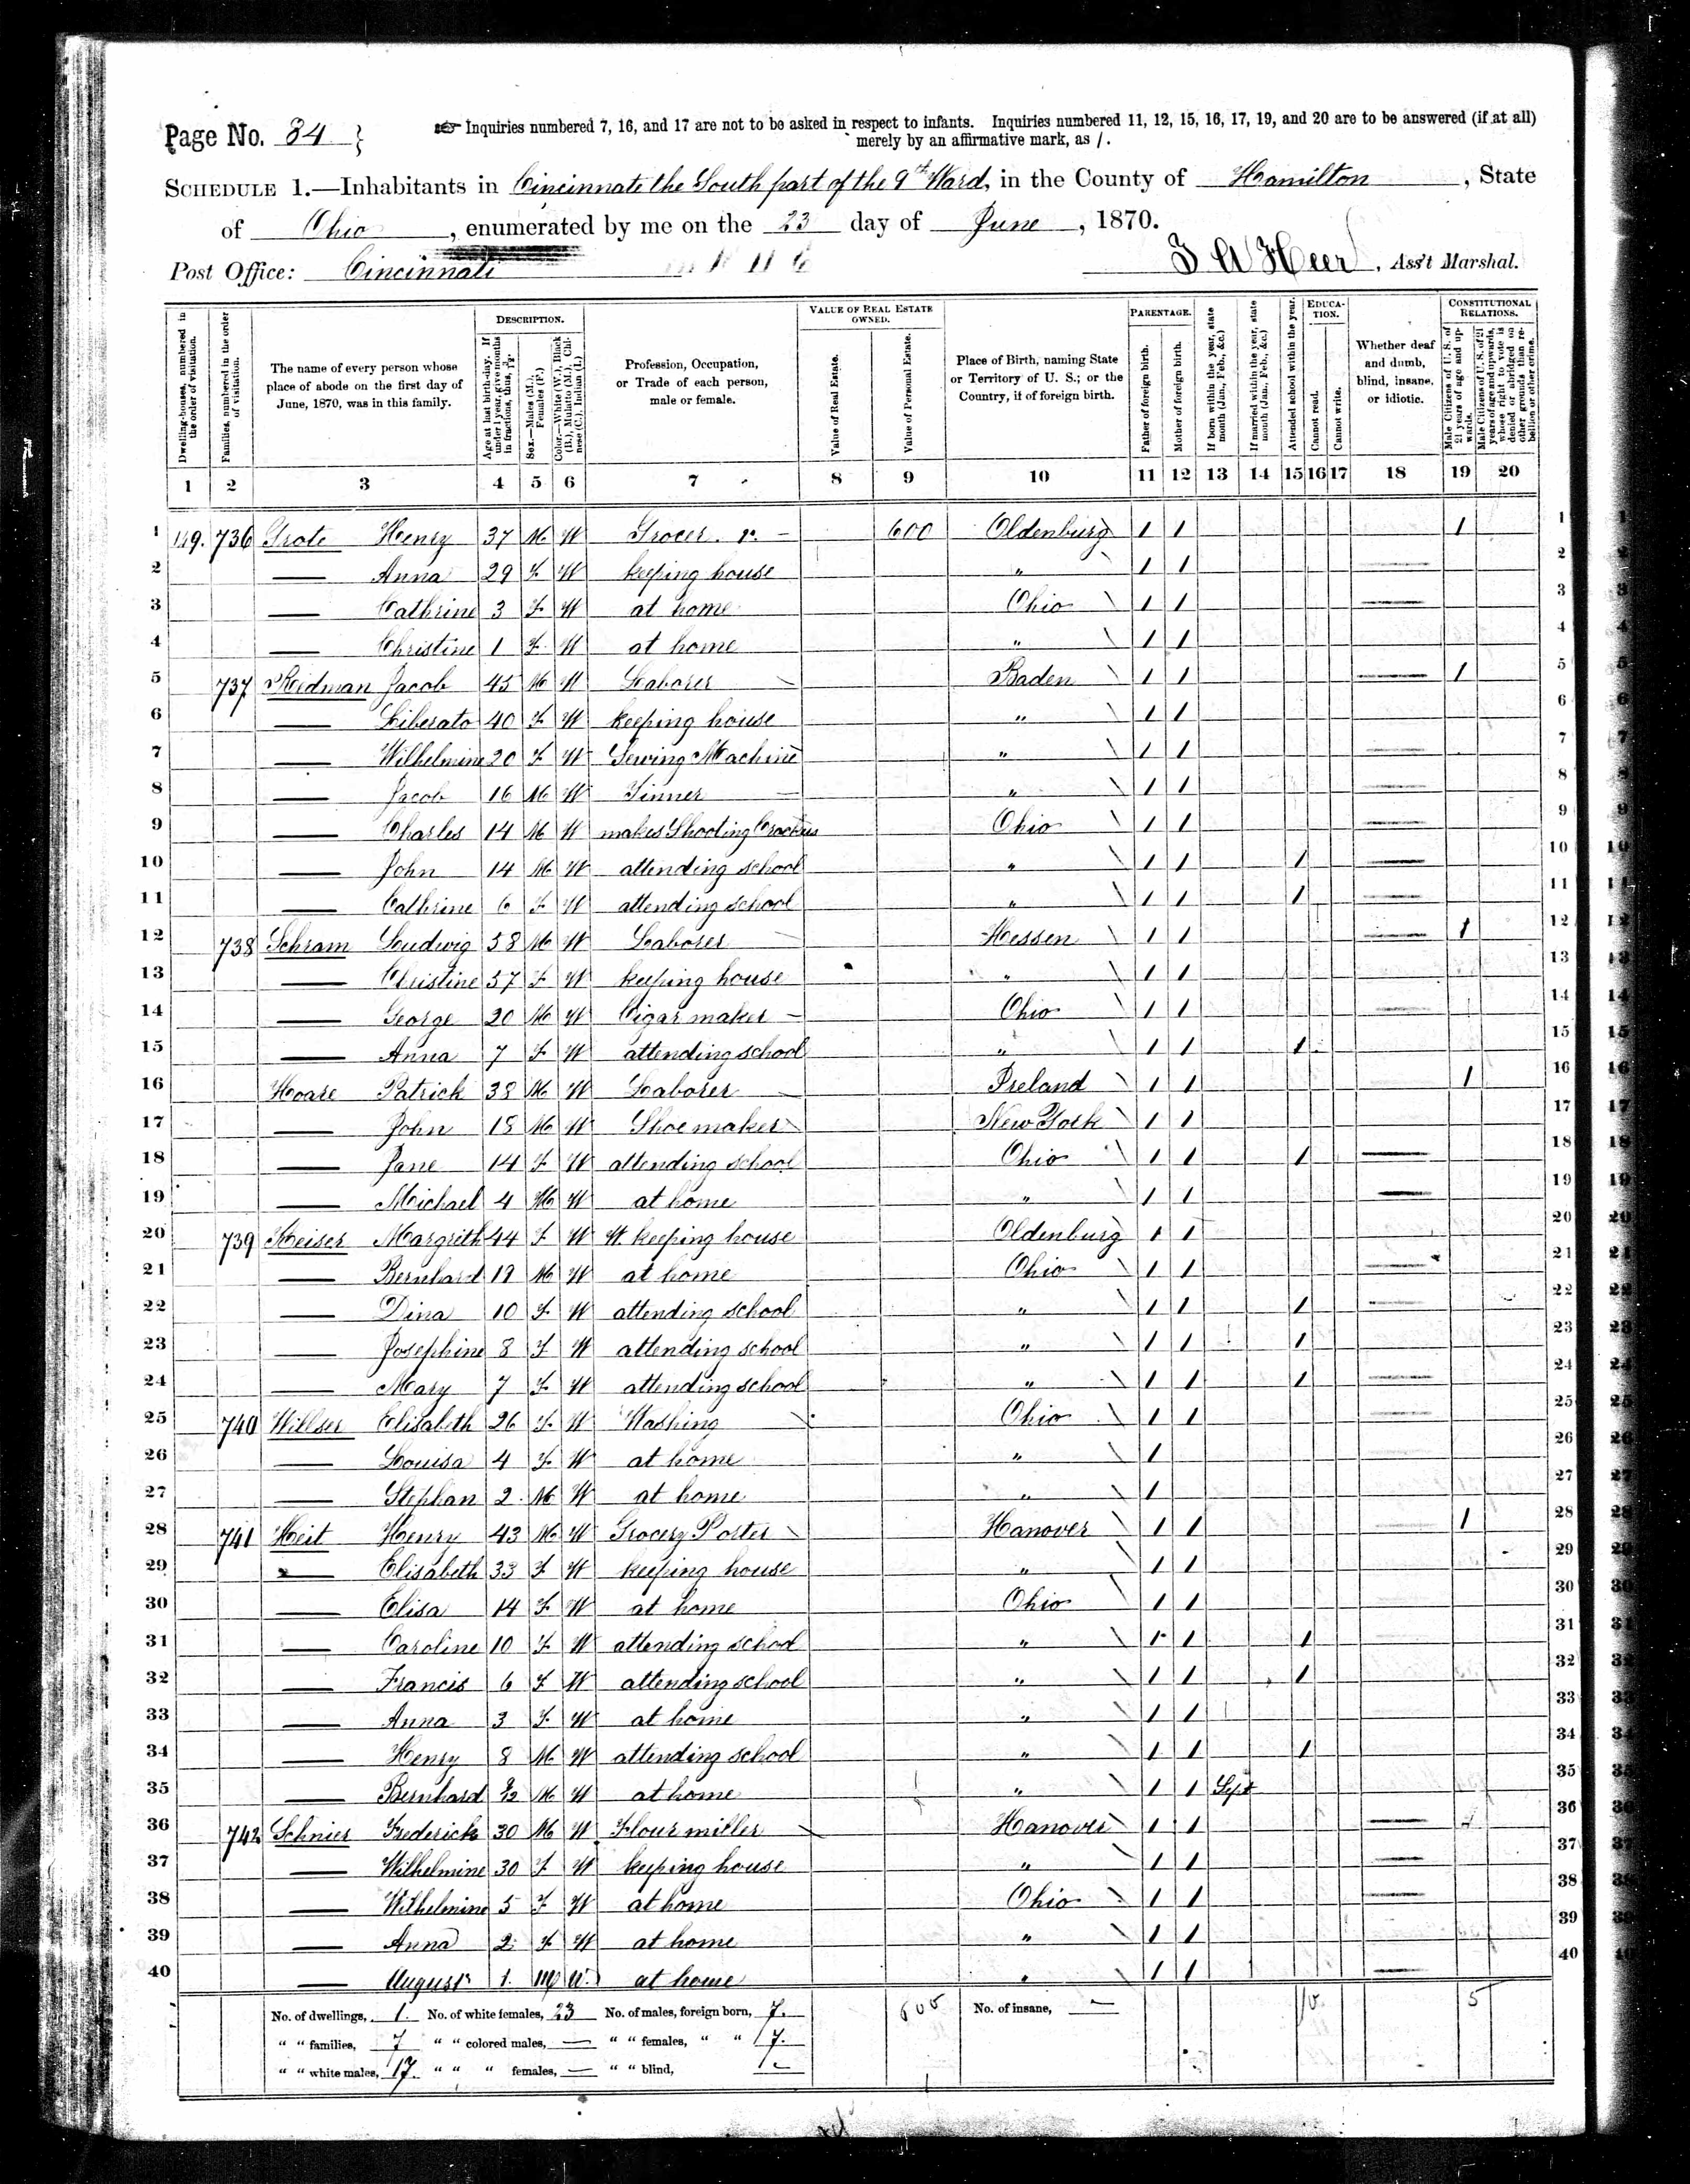 Page No. 84
Inquiries numbered 7, 16, and 17 are not to be asked in respect to infants. Inquiries numbered 11, 12, 15, 16, 17, 19, and 20 are to be answered (if at all)
merely by an affirmative mark, as /.
SCHEDULE 1.—Inhabitants in Cincinnati the South part of the 9th Ward, in the County of Hamilton, State
of Ohio, enumerated by me on the 23 day of June, 1870.
Post Office: Cincinnati
Heer, Ass't Marshal.
Dwelling-houses, numbered in the order of visitation.
Families, numbered in the order of visitation.
The name of every person whose place of abode on the first day of June, 1870, was in this family.
DESCRIPTION.
Age at last birth-day. If under 1 year, give months in fractions, thus, 3/12.
Sex.—Males (M.), Females (F.)
Color.—White (W.), Black (B.), Mulatto (M.), Chinese (C.), Indian (I.)
Profession, Occupation, or Trade of each person, male or female.
VALUE OF REAL ESTATE OWNED.
Value of Real Estate.
Value of Personal Estate.
Place of Birth, naming State or Territory of U. S.; or the Country, if of foreign birth.
PARENTAGE.
Father of foreign birth.
Mother of foreign birth.
If born within the year, state month (Jan., Feb., &c.)
If married within the year, state month (Jan., Feb., &c.)
Attended school within the year.
EDUCATION.
Cannot read.
Cannot write.
Whether deaf and dumb, blind, insane, or idiotic.
CONSTITUTIONAL RELATIONS.
Male Citizens of U. S. of 21 years of age and upwards.
Male Citizens of U. S. of 21 years of age and upwards, whose right to vote is denied or abridged on other grounds than rebellion or other crime.
1 2 3 4 5 6 7 8 9 10 11 12 13 14 15 16 17 18 19 20
1 149. 736 Grote Henry 37 M W Grocer. 600 Oldenburg 1 1 1 1
2 — Anna 29 F W keeping house " 1 1 2
3 — Cathrine 3 F W at home Ohio 1 1 3
4 — Christine 1 F W at home " 1 1 4
5 737 Jacob 45 M W Laborer Baden 1 1 1 5
6 — Liberato 40 F W keeping house " 1 1 6
7 — Wilhelmine 20 F W Sewing Machine " 1 1 7
8 — Jacob 16 M W Tinner " 1 1 8
9 — Charles 14 M W makes Shooting Crackers Ohio 1 1 9
10 — John 14 M W attending school " 1 1 1 10
11 — Cathrine 6 F W attending school " 1 1 1 11
12 738 Schram Ludwig 58 M W Laborer Hessen 1 1 1 12
13 — Christine 57 F W keeping house " 1 1 13
14 — George 20 M W Cigar maker Ohio 1 1 14
15 — Anna 7 F W attending school " 1 1 1 15
16 Hoare Patrick 38 M W Laborer Ireland 1 1 1 16
17 — John 18 M W Shoemaker New York 1 1 17
18 — Jane 14 F W attending school Ohio 1 1 1 18
19 — Michael 4 M W at home " 1 1 19
20 739 Keiser Margrith 44 F W W. keeping house Oldenburg 1 1 20
21 — Bernhard M W at home Ohio 1 1 21
22 — Dina 10 F W attending school " 1 1 1 22
23 — Josephine 8 F W attending school " 1 1 1 23
24 — Mary 7 F W attending school " 1 1 1 24
25 740 Willser Elisabeth 26 F W Washing Ohio 1 1 25
26 — Louisa 4 F W at home " 1 26
27 — Stephan 2 M W at home " 1 27
28 741 Heit Henry 43 M W Grocery Porter Hanover 1 1 1 28
29 — Elisabeth 33 F W keeping house " 1 1 29
30 — Elisa 14 F W at home Ohio 1 1 30
31 — Caroline 10 F W attending school " 1 1 1 31
32 — Francis 6 F W attending school " 1 1 1 32
33 — Anna 3 F W at home " 1 1 33
34 — Henry 8 M W attending school " 1 1 1 34
35 — Bernhard M W at home " 1 1 Sept 35
36 742 Schnier Frederick 30 M W Flour miller Hanover 1 1 36
37 — Wilhelmine 30 F W keeping house " 1 1 37
38 — Wilhelmine 5 F W at home Ohio 1 1 38
39 — Anna 2 F W at home " 1 1 39
40 — August 1 M W at home " 1 1 40
No. of dwellings, 1. No. of white females, 23 No. of males, foreign born, 7. 600 No. of insane, — 10 5
" " families, 7 " " colored males, — " " females, " " 7.
" " white males, 17. " " " females, — " " blind, —